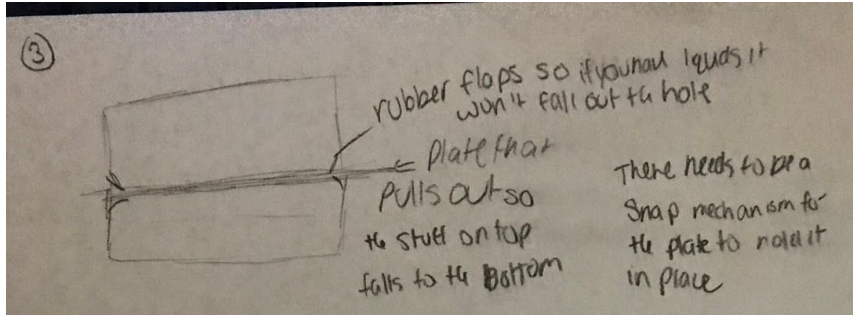 3
rubber flaps so if you hau lquds it
won't fall out th hole
plate that
pulls out so
the stuff on top
falls to the Bottom
There needs to be a
Snap mechanism for
the plate to hold it
in place